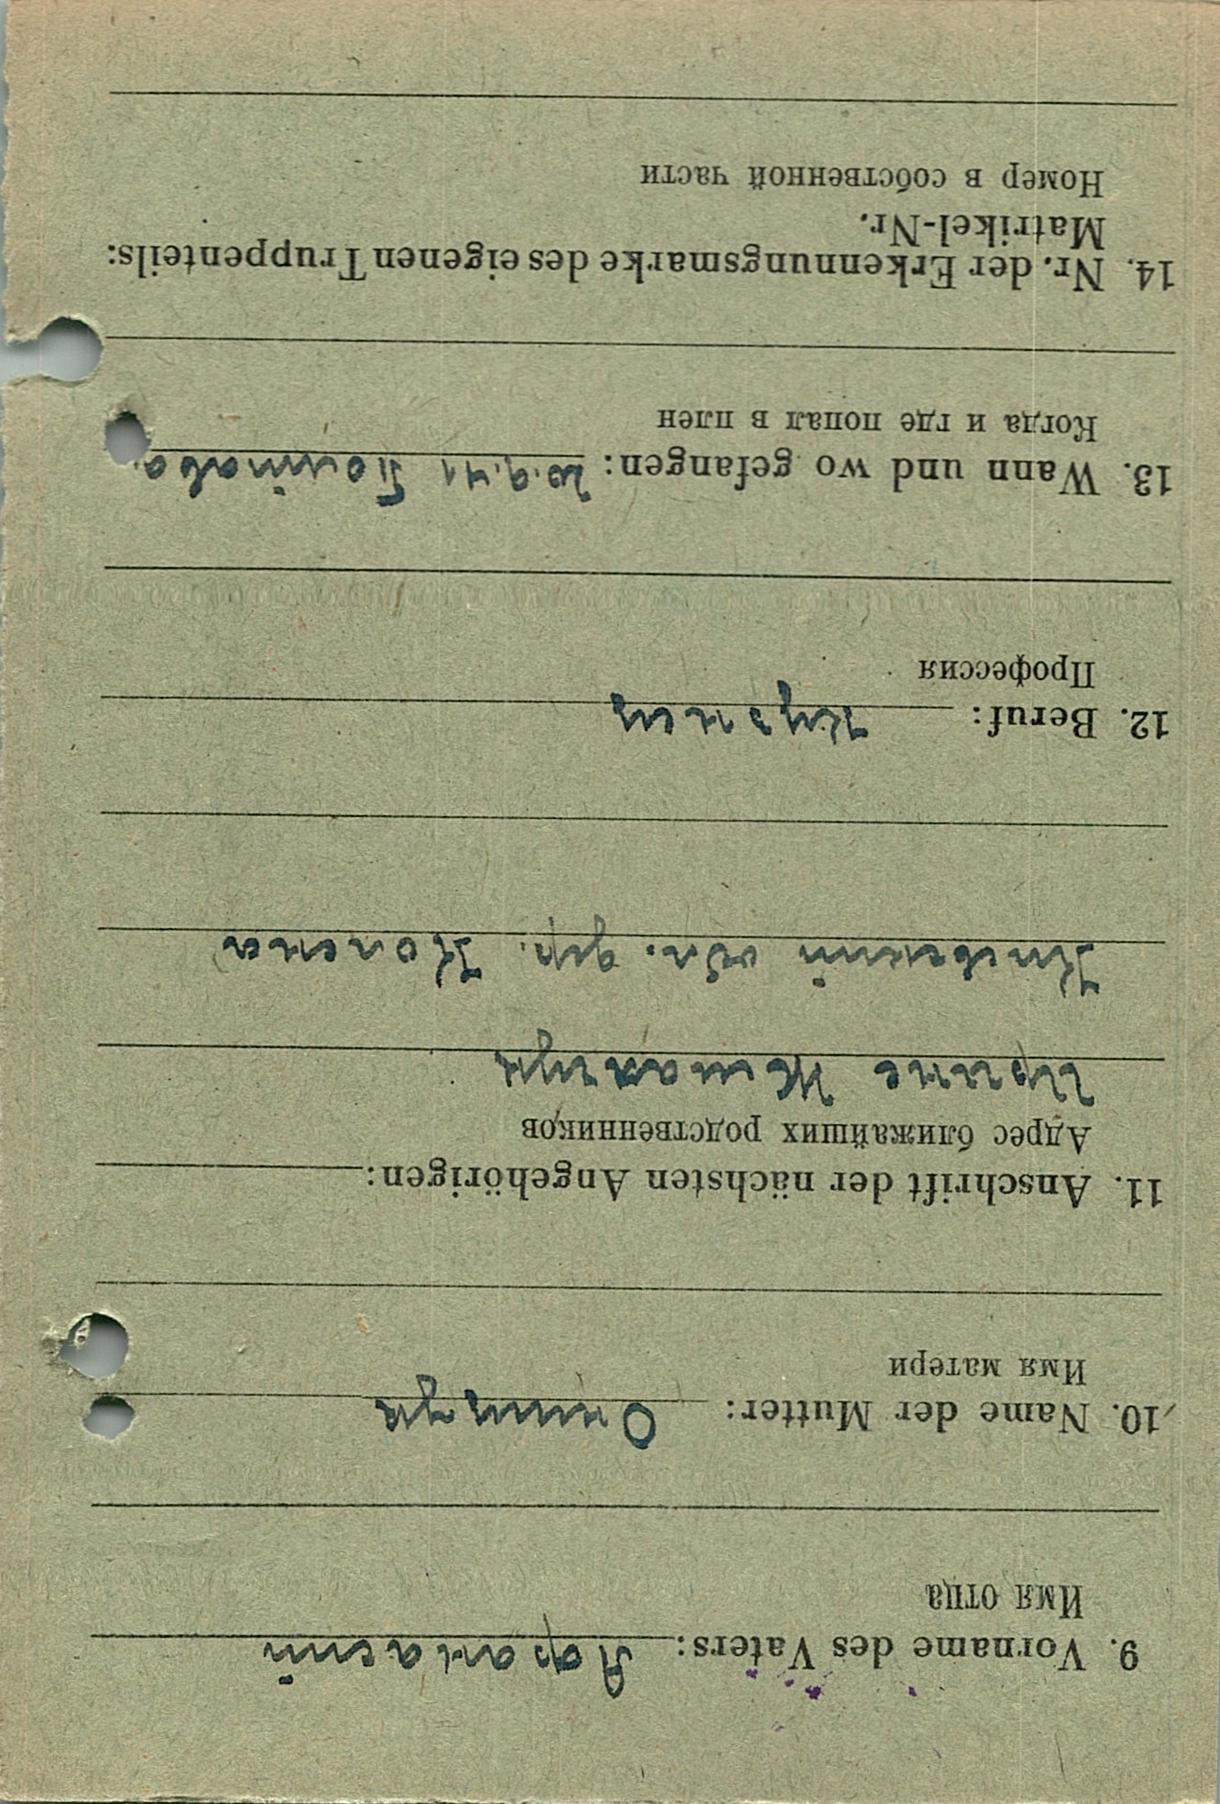 9. Vorname des Vaters: Афанасий
Имя отца
10. Name der Mutter:
Имя матери
11. Anschrift der nächsten Angehörigen:
Адрес ближайших родственников
Ирине
Киевский обл. дер.
12. Beruf: Кузнец
Профессия
13. Wann und wo gefangen: 20.9.41 Полтава
Когда и где попал в плен
14. Nr. der Erkennungsmarke des eigenen Truppenteils:
Matrikel-Nr.
Номер в собственной части